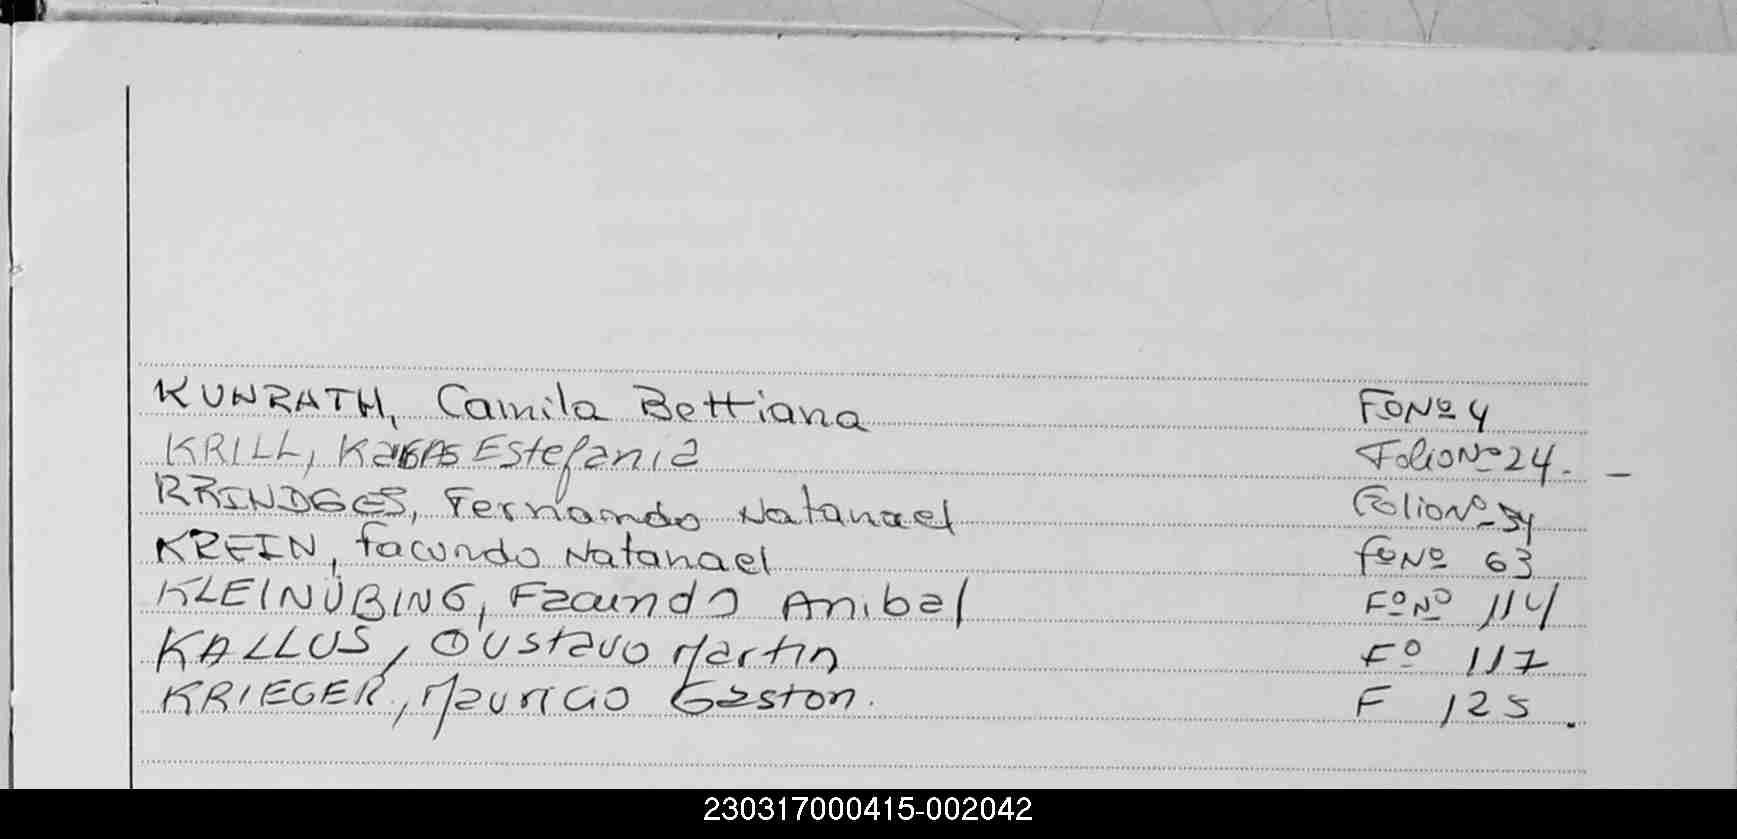 KUNRATH, Camila Bettiana FoNo 4
KRILL, Estefania Folio No 24. -
KRINDGES, Fernando Natanael Folio No 54
KREIN, facundo Natanael foNo 63
KLEINÜBING, Facundo Anibal Fo No 114
KALLUS, Gustavo Martin Fo 117
KRIEGER, Mauricio Gaston. F 125.
230317000415-002042